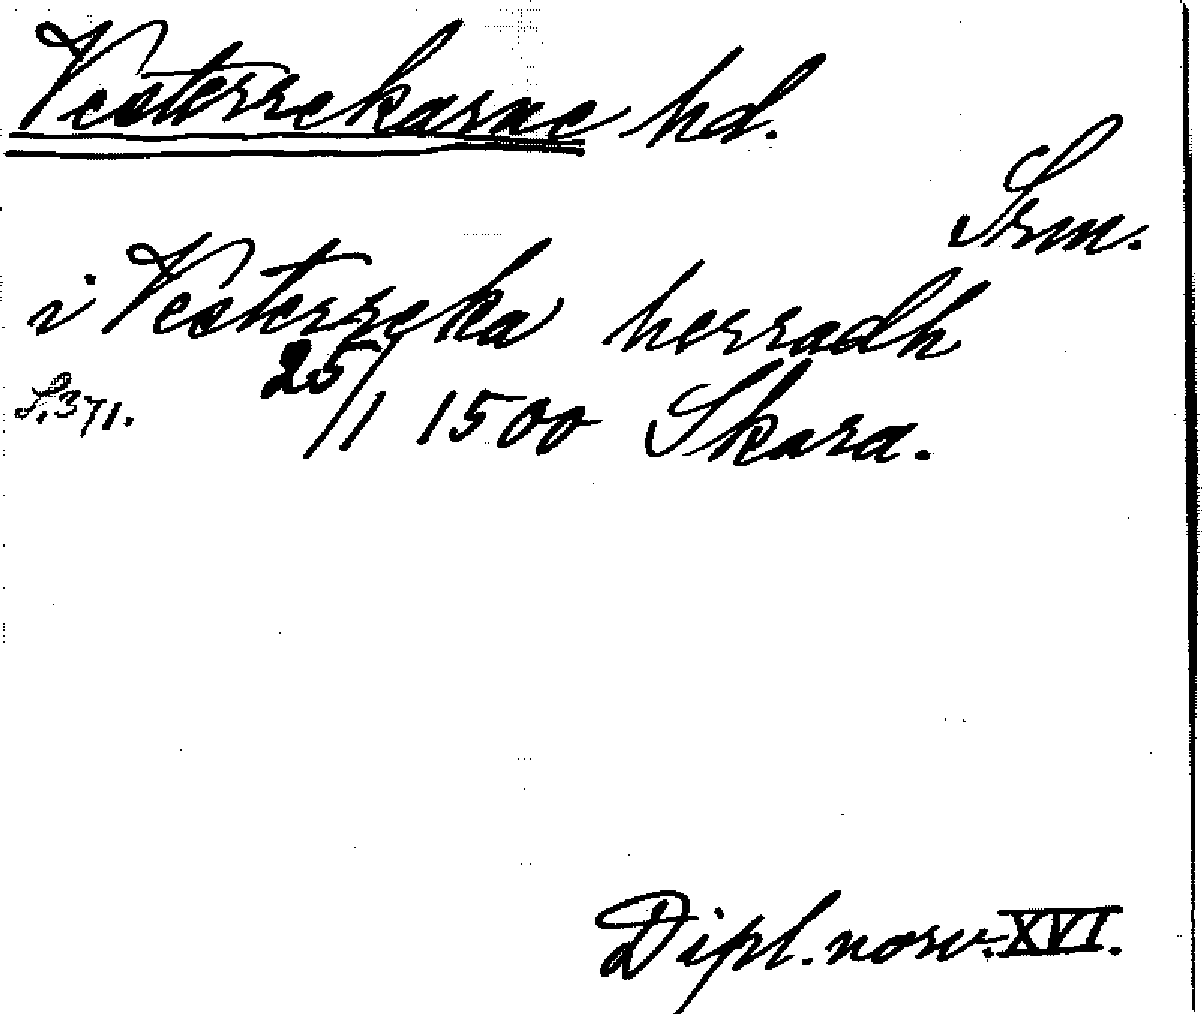 Vesterrekarne hd.
Srm.
i Vesterreka herradh
S. 371. 25/1 1500 Skara.
Dipl. norv. XVI.